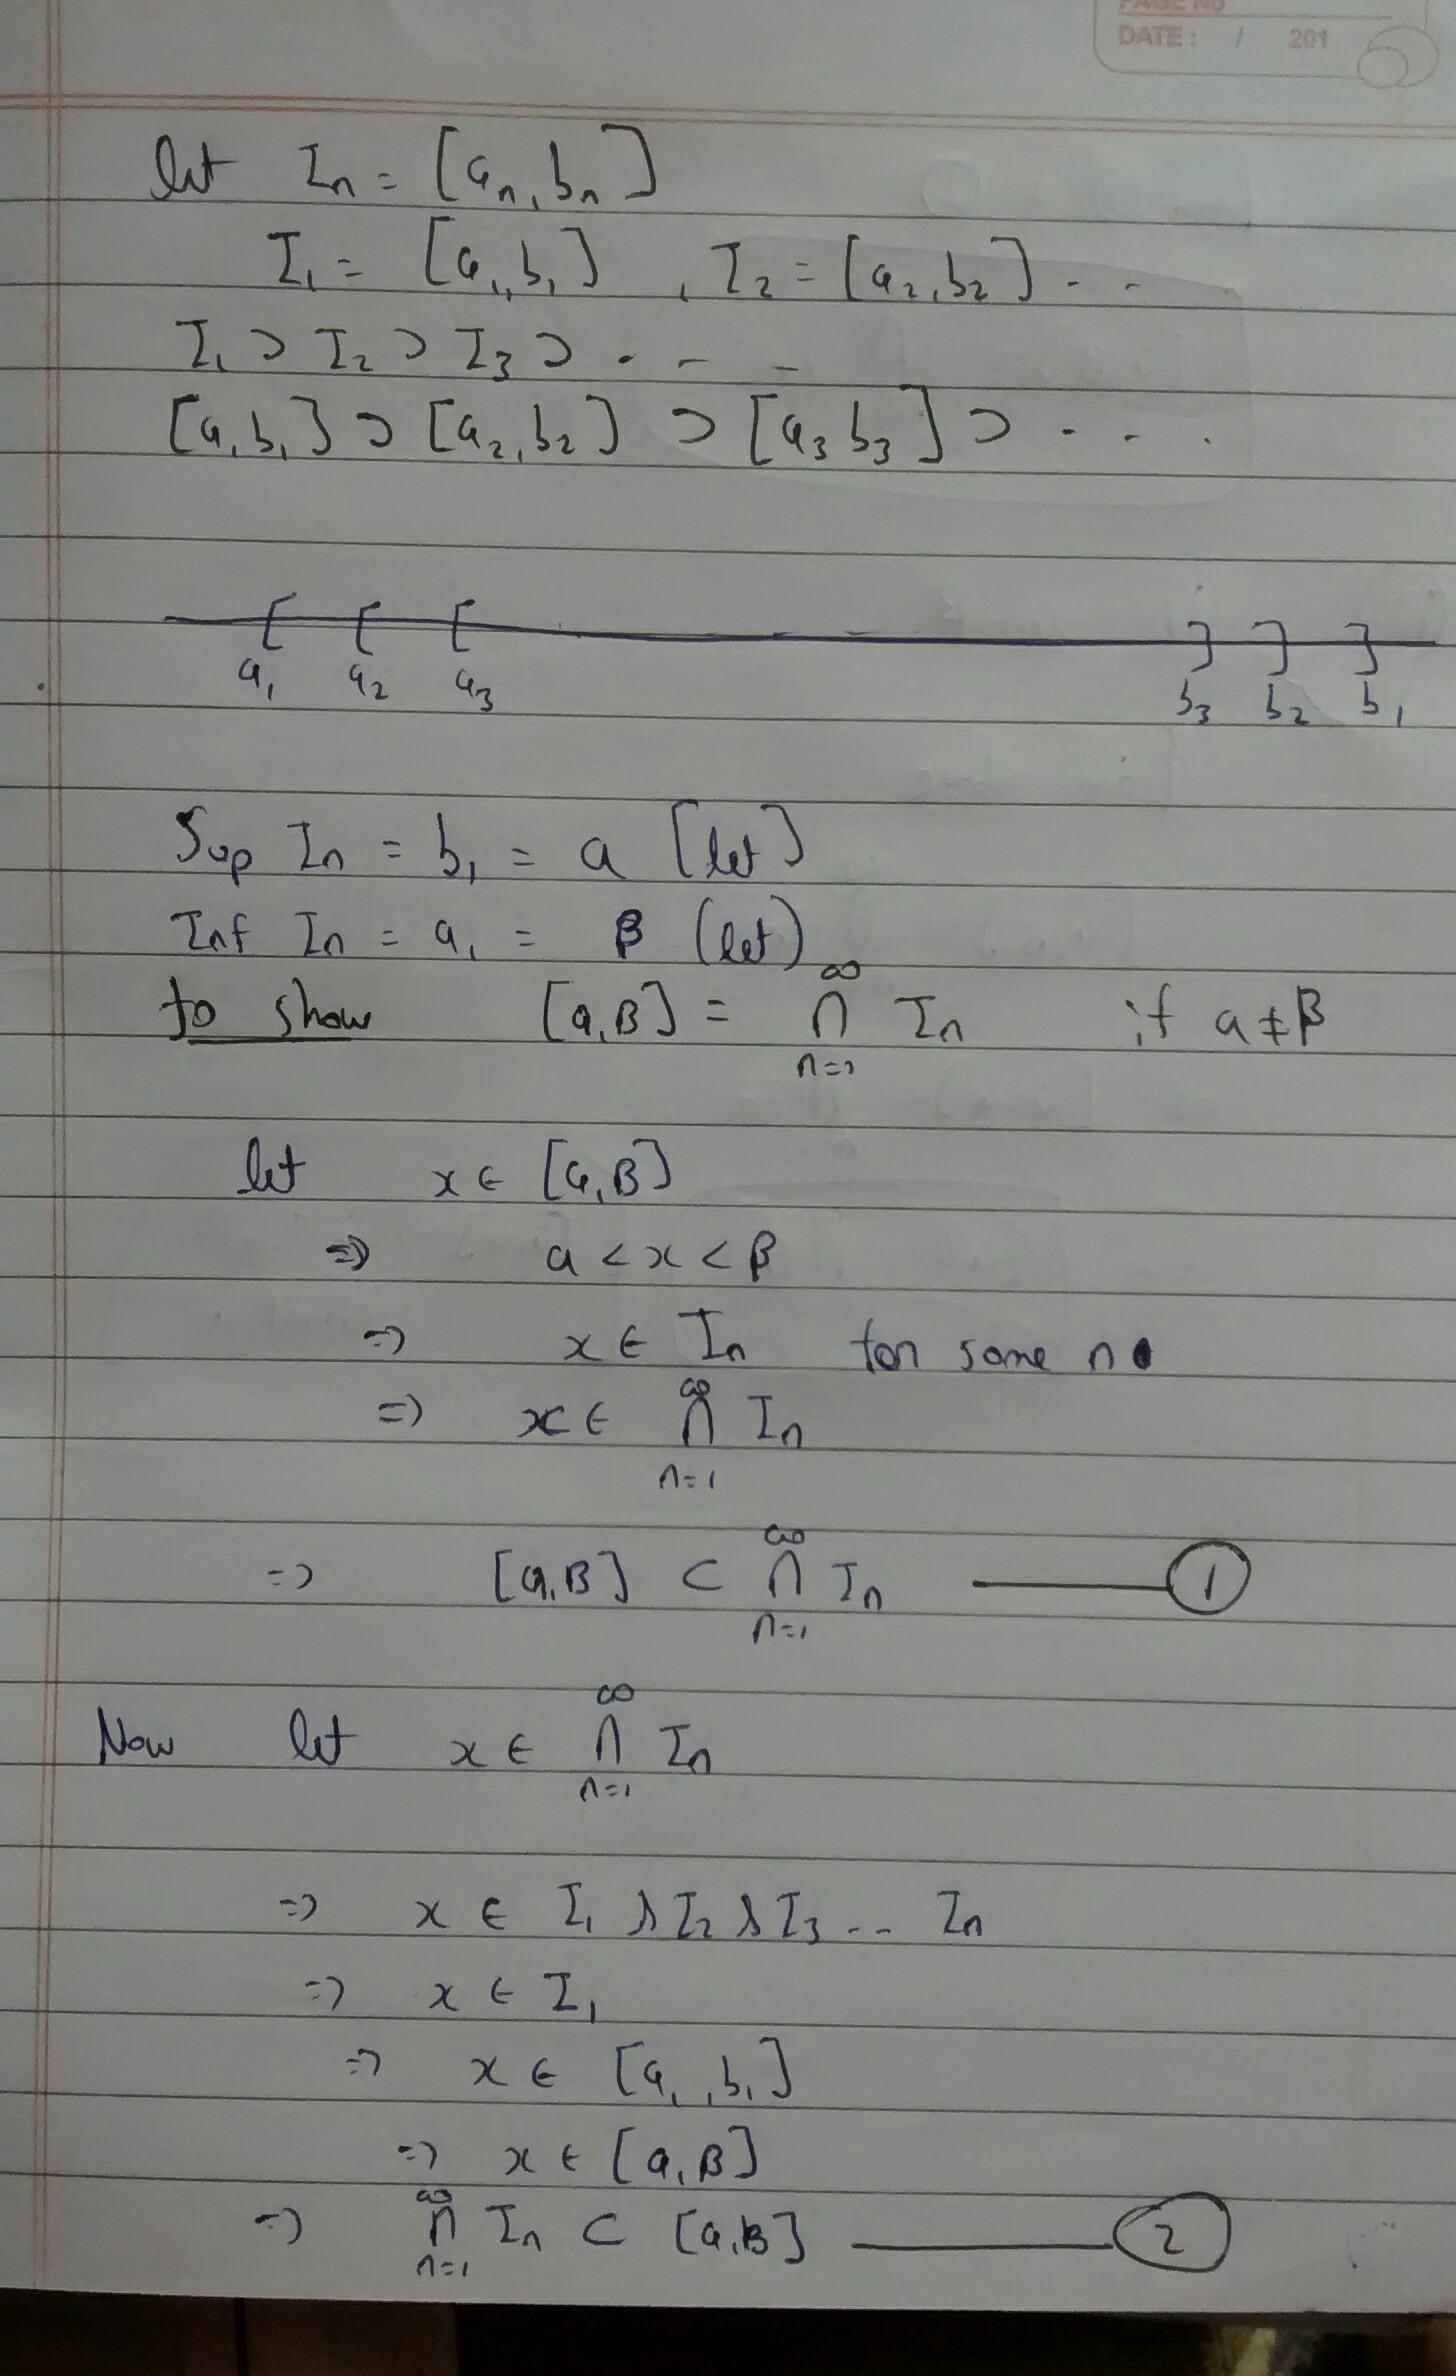 PAGE NO
DATE: / 201
let In = [an, bn]
I1 = [a1, b1] , I2 = [a2, b2] - -
I1 ⊃ I2 ⊃ I3 ⊃ . - -
[a1 b1] ⊃ [a2, b2] ⊃ [a3 b3] ⊃ - - .
a1 a2 a3 b3 b2 b1
Sup In = b1 = a [let]
Inf In = a1 = β (let)
to show [a, β] = ∞∩n=1 In if a ≠ β
let x ∈ [a, β]
⇒ a < x < β
⇒ x ∈ In for some n
⇒ x ∈ ∞∩n=1 In
⇒ [a, β] ⊂ ∞∩n=1 In —— 1
Now let x ∈ ∞∩n=1 In
⇒ x ∈ I1 & I2 & I3 -- In
⇒ x ∈ I1
⇒ x ∈ [a1, b1]
⇒ x ∈ [a, β]
⇒ ∞∩n=1 In ⊂ [a, β] —— 2